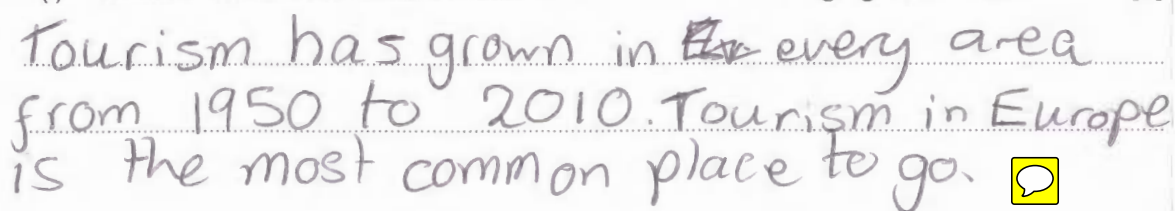 Tourism has grown in every area
from 1950 to 2010. Tourism in Europe
is the most common place to go.